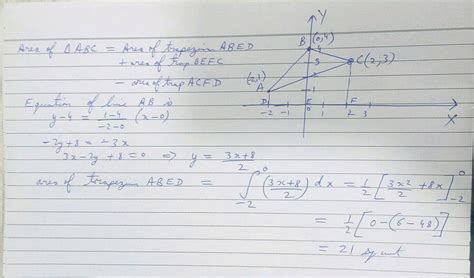 Area of ΔABC = Area of trapezium ABED
+ area of trap BEFC
- area of trap ACFD
Equation of line AB is
y-4 = \frac{1-4}{-2-0} (x-0)
-2y+8 = -3x
3x-2y+8=0 ⇒ y = \frac{3x+8}{2}
area of trapezium ABED = \int_{-2}^{0} (\frac{3x+8}{2}) dx = \frac{1}{2} [\frac{3x^2}{2} + 8x]_{-2}^{0}
= \frac{1}{2} [0-(6-48)]
= 21 sq unit
Y
B (0,4)
4
C(2,3)
3
2
(-2,1)
A
1
D E F
-2 -1 0 1 2 3
X